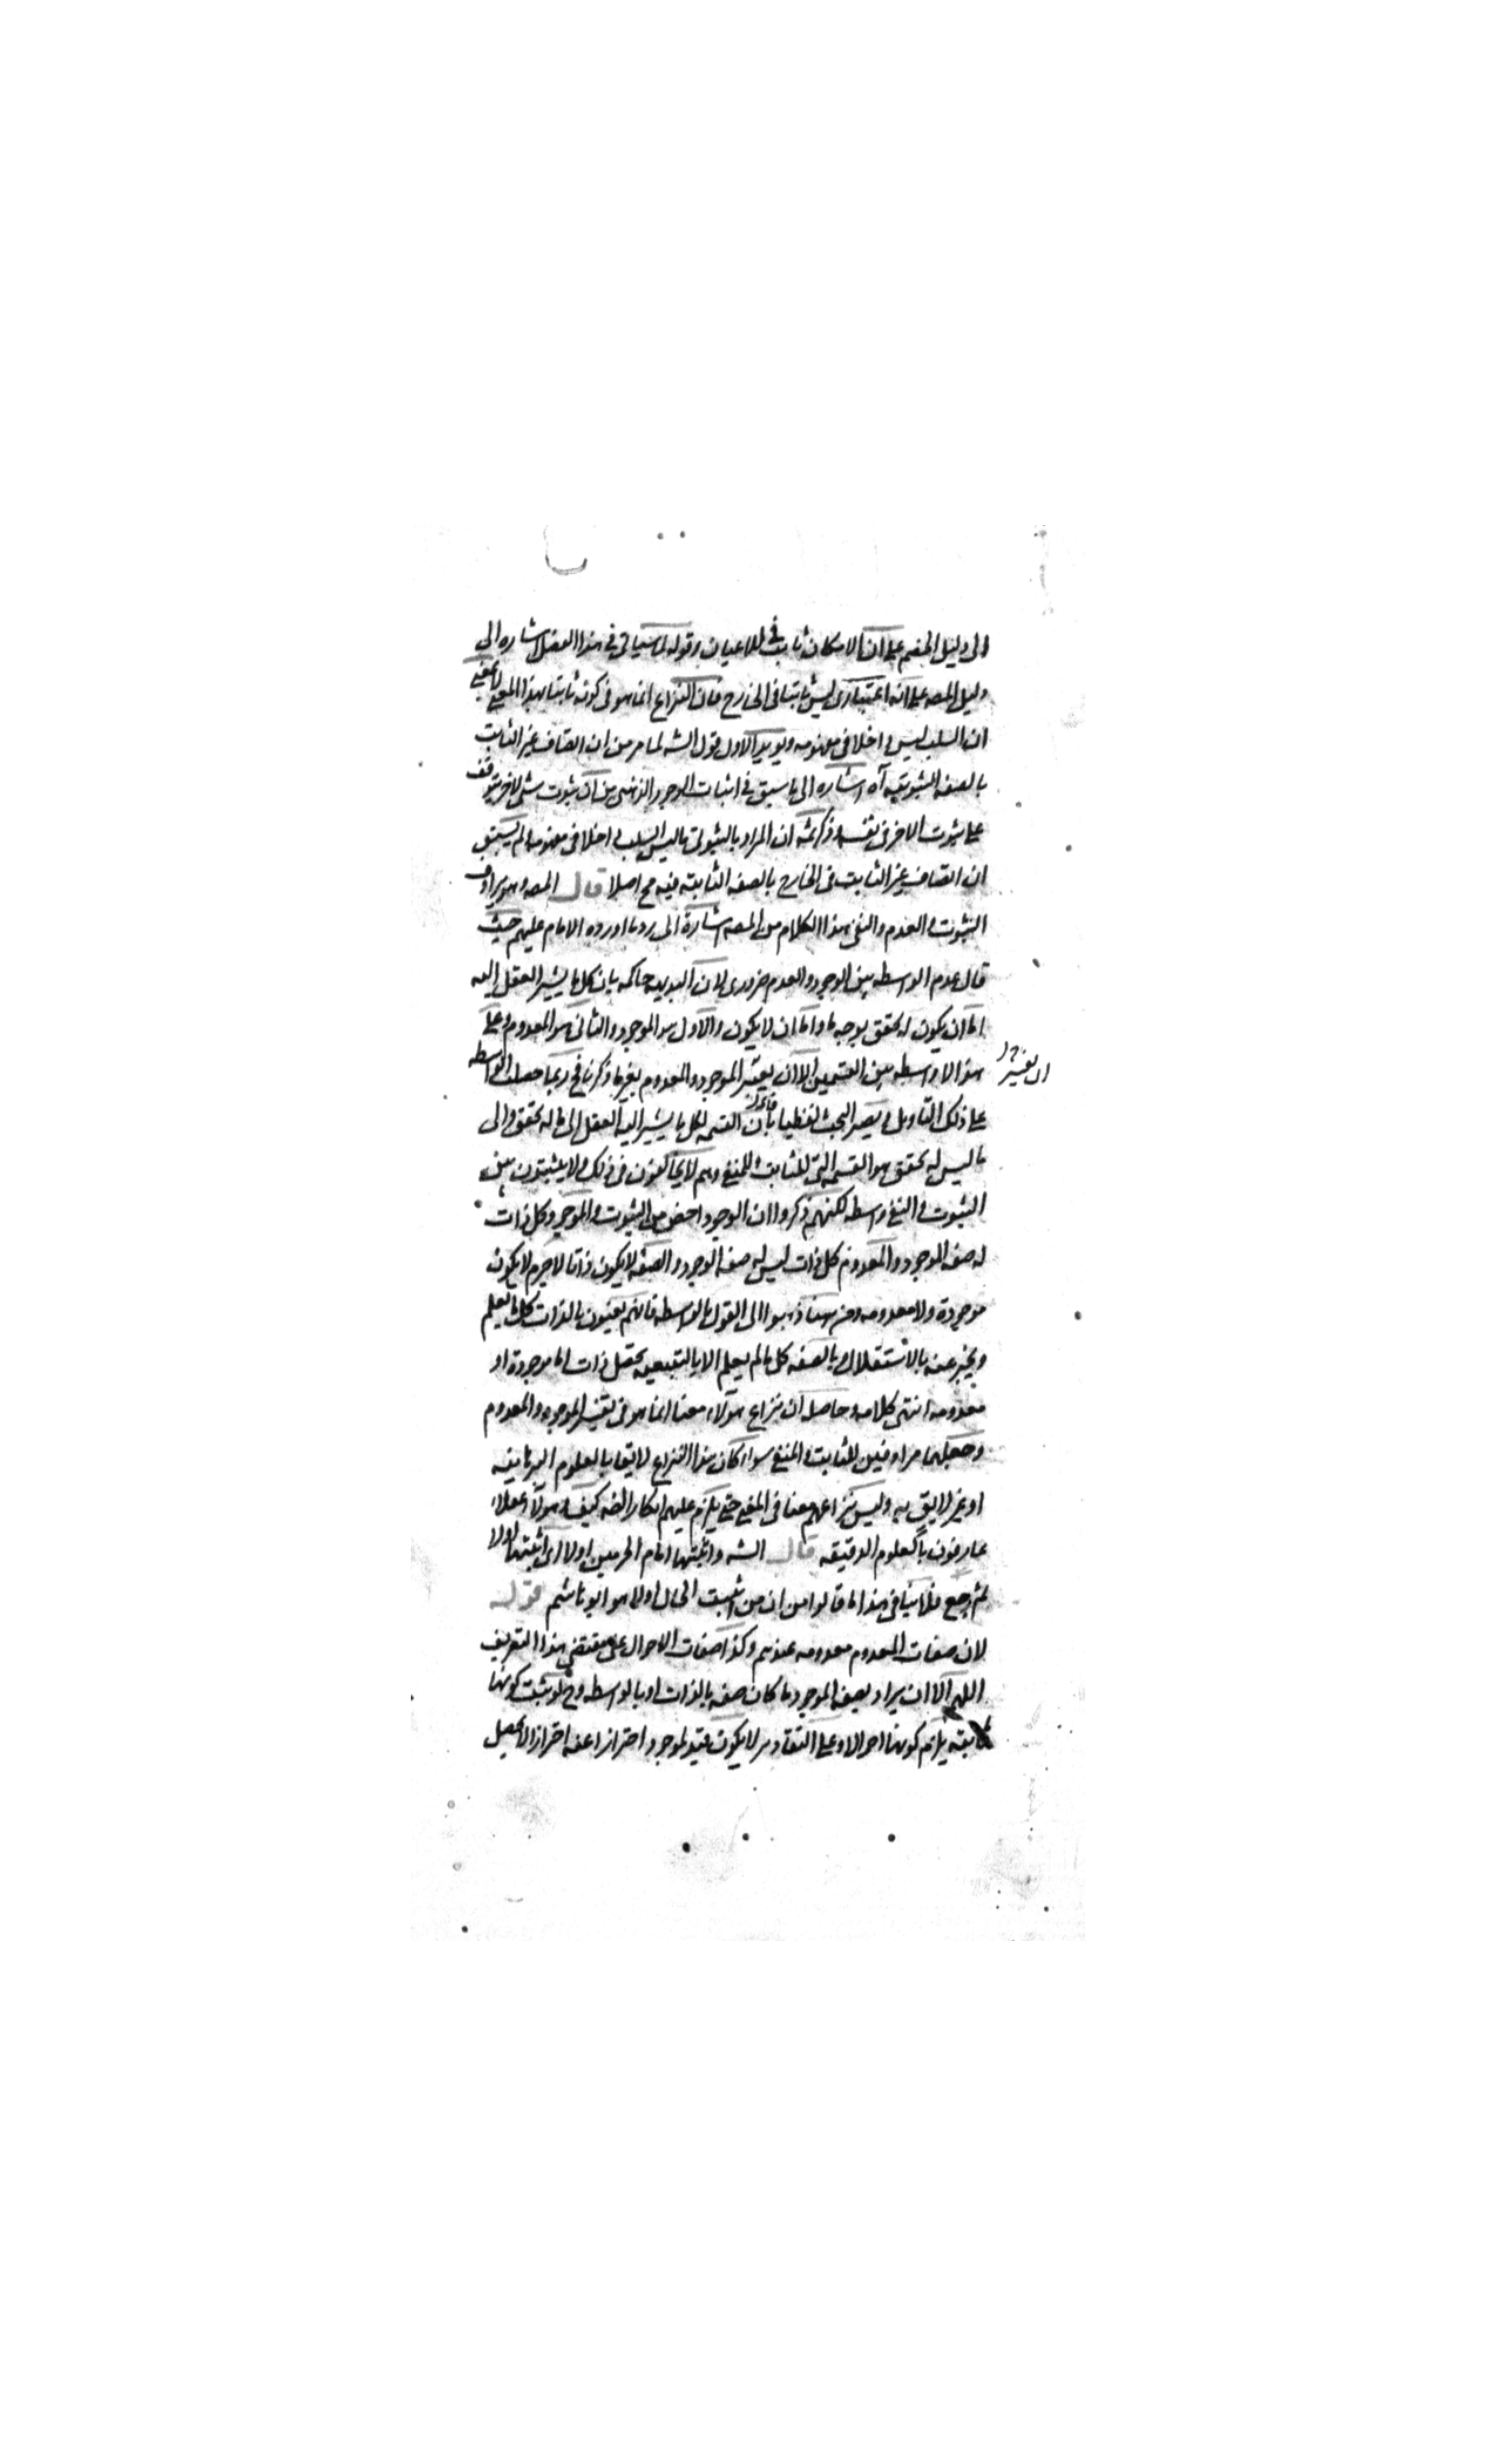 الى دليل الخصم على ان الامكان ثابت فى للاعيان وقوله كما سياتى فى هذا الفصل اشاره الى
دليل المصه على انه اعتبارى ليس ثابتا فى الخارج فان النزاع انما هو فى كونه ثابتا بهذا المعنى لا بمعنى
ان السلب ليس داخلا فى مفهومه ويويد الاول قول الشه لما مر من ان اتصاف غير الثابت
بالصفه الثبوتيه آه اشاره الى ما سبق فى اثبات الوجود الذهنى من ان ثبوت شى لاخر يتوقف
على ثبوت الاخر فى نفسه وذكر ثمه ان المراد بالثبوتى ما ليس السلب داخلا فى مفهومه لم يسبق
ان اتصاف غير الثابت فى الخارج بالصفه الثابته فيه مح اصلا قال المصه وهو يرادف
الثبوت والعدم والنفى هذا الكلام من المصه اشارة الى رد ما اورده الامام عليهم حيث
قال عدم الواسطه بين الوجود والعدم ضرورى لان البديهه حاكمه بان كل ما يشير العقل اليه
اما ان يكون له تحقق بوجه ما واما ان لا يكون والاول هو الموجود والثانى هو المعدوم وعلى
هذا لا واسطه بين القسمين الا ان يفسر الموجود والمعدوم بغير ما ذكرنا فح ربما حصلت الواسطه
على ذلك التاويل ويصير البحث لفظيا بان القسمه لكل ما يشير اليه العقل الى ما له تحقق والى
ما ليس له تحقق هو القسمه التى للثابت والمنفى وهم لا يخالفون فى ذلك ولا يثبتون بين
الثبوت والنفى واسطه لكنهم ذكروا ان الوجود اخص من الثبوت والموجود كل ذات
له صفه الوجود والمعدوم كل ذات ليس له صفه الوجود والصفه لا يكون ذاتا لاجرم لا يكون
موجودة ولا معدومه ومن هنا ذهبوا الى القول بالواسطه فانهم يعنون بالذات كل ما يعلم
ويخبر عنه بالاستقلال وبالصفه كل ما لم يعلم الا بالتبعيه فكل ذات اما موجودة او
معدومه انتهى كلامه وحاصله ان نزاع هولاء معنا انما هو فى تفسير الموجود والمعدوم
وجعلهما مرادفين للثابت والمنفى سواء كان هذا النزاع لايقا بالعلوم البرهانيه
او غير لايق به وليس نزاعهم معنا فى المعنى حتى يلزم عليهم انكار الضه كيف وهولاء عقلاء
عارفون بالعلوم الدقيقه قال الشه واثبتها امام الحرمين اولا اى اثبتها اولا
ثم رجع فلا ينافى هذا ما قالوا من ان من اثبت الحال اولا هو ابو هاشم قوله
لان صفات المعدوم معدومه عندهم وكذا صفات الاحوال على مقتضى هذا التعريف
اللهم الا ان يراد بصفه الموجود ما كان صفه بالذات او بالواسطه وح لو ثبت كونها
ثابته يلزم كونها احوالا وعلى التقادير لا يكون قيد لموجود احترازا عنه احترازا لا يحصل